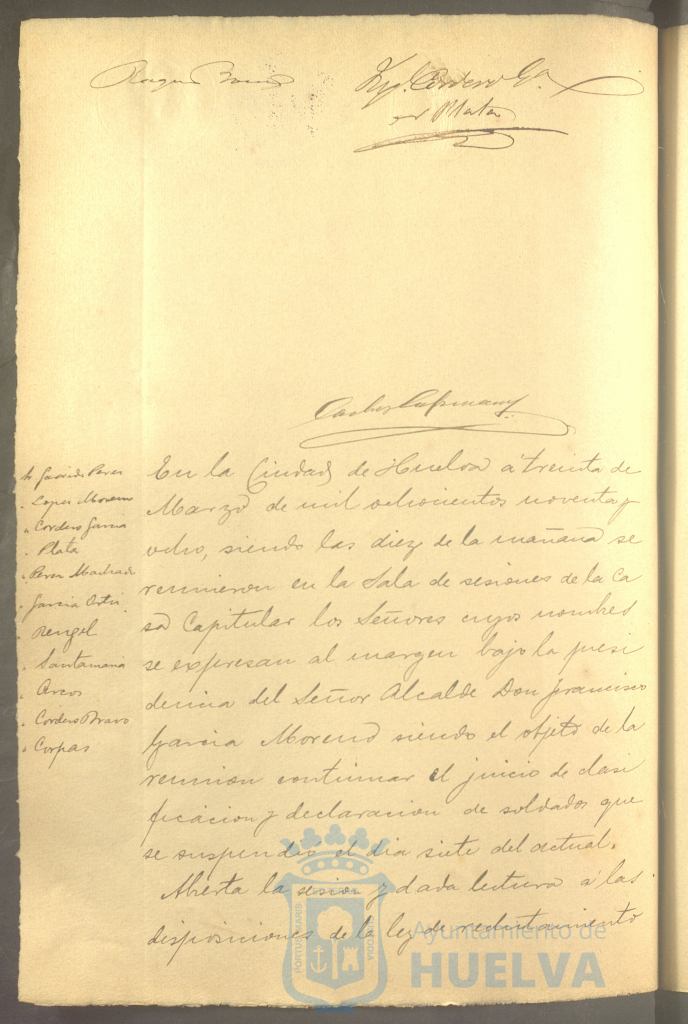 Roque
Cordero Ga
Plata
Carlos Capmany
Sr Garrido Perez
" Lopez Moreno
" Cordero Garcia
" Plata
" Perez Machado
" Garcia Ortiz
" Rengel
" Santamaria
" Arcos
" Cordero Bravo
" Corpas
En la Ciudad de Huelva á treinta de
Marzo de mil ochocientos noventa y
ocho, siendo las diez de la mañana se
reunieron en la Sala de sesiones de la Ca
sa Capitular los Señores cuyos nombres
se expresan al margen bajo la presi
dencia del Señor Alcalde Don Francisco
Garcia Moreno siendo el objeto de la
reunion continuar el juicio de clasi
ficacion y declaracion de soldados que
se suspendió el dia siete del actual.
Abierta la sesion y dada lectura á las
disposiciones de la ley de reclutamiento
Ayuntamiento de
HUELVA